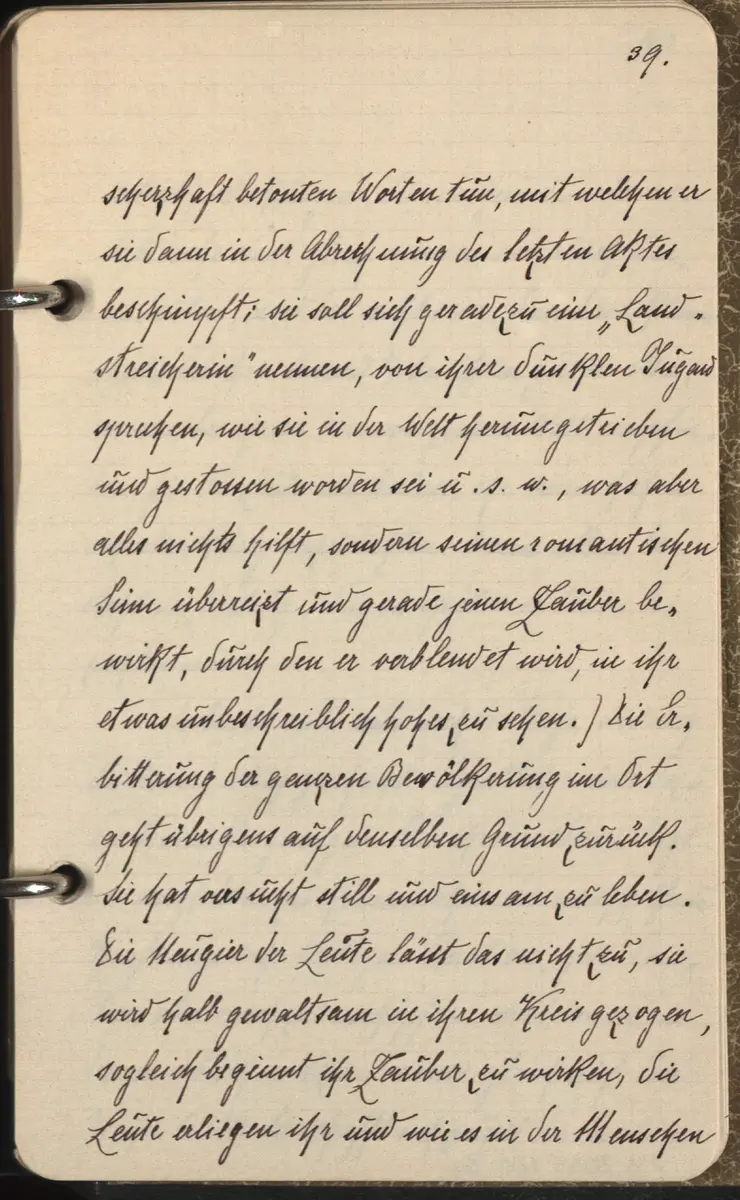 39.
scherzhaft betonten Worten tun, mit welchen er
sie dann in der Abrechnung des letzten Aktes
beschimpft; sie soll sich geradezu eine „Land-
streicherin" nennen, von ihrer dunklen Jugend
sprechen, wie sie in der Welt herumgetrieben
und gestossen worden sei u. s. w., was aber
alles nichts hilft, sondern seinen romantischen
Sinn überreizt und gerade jenen Zauber be-
wirkt, durch den er verblendet wird, in ihr
etwas unbeschreiblich hohes zu sehen.) Die Er-
bitterung der ganzen Bewölkerung im Ort
geht übrigens auf denselben Grund zurück.
Sie hat versucht still und einsam zu leben.
Die Neugier der Leute lässt das nicht zu, sie
wird halb gewaltsam in ihren Kreis gezogen,
sogleich beginnt ihr Zauber zu wirken, die
Leute erliegen ihr und wie es in der Menschen